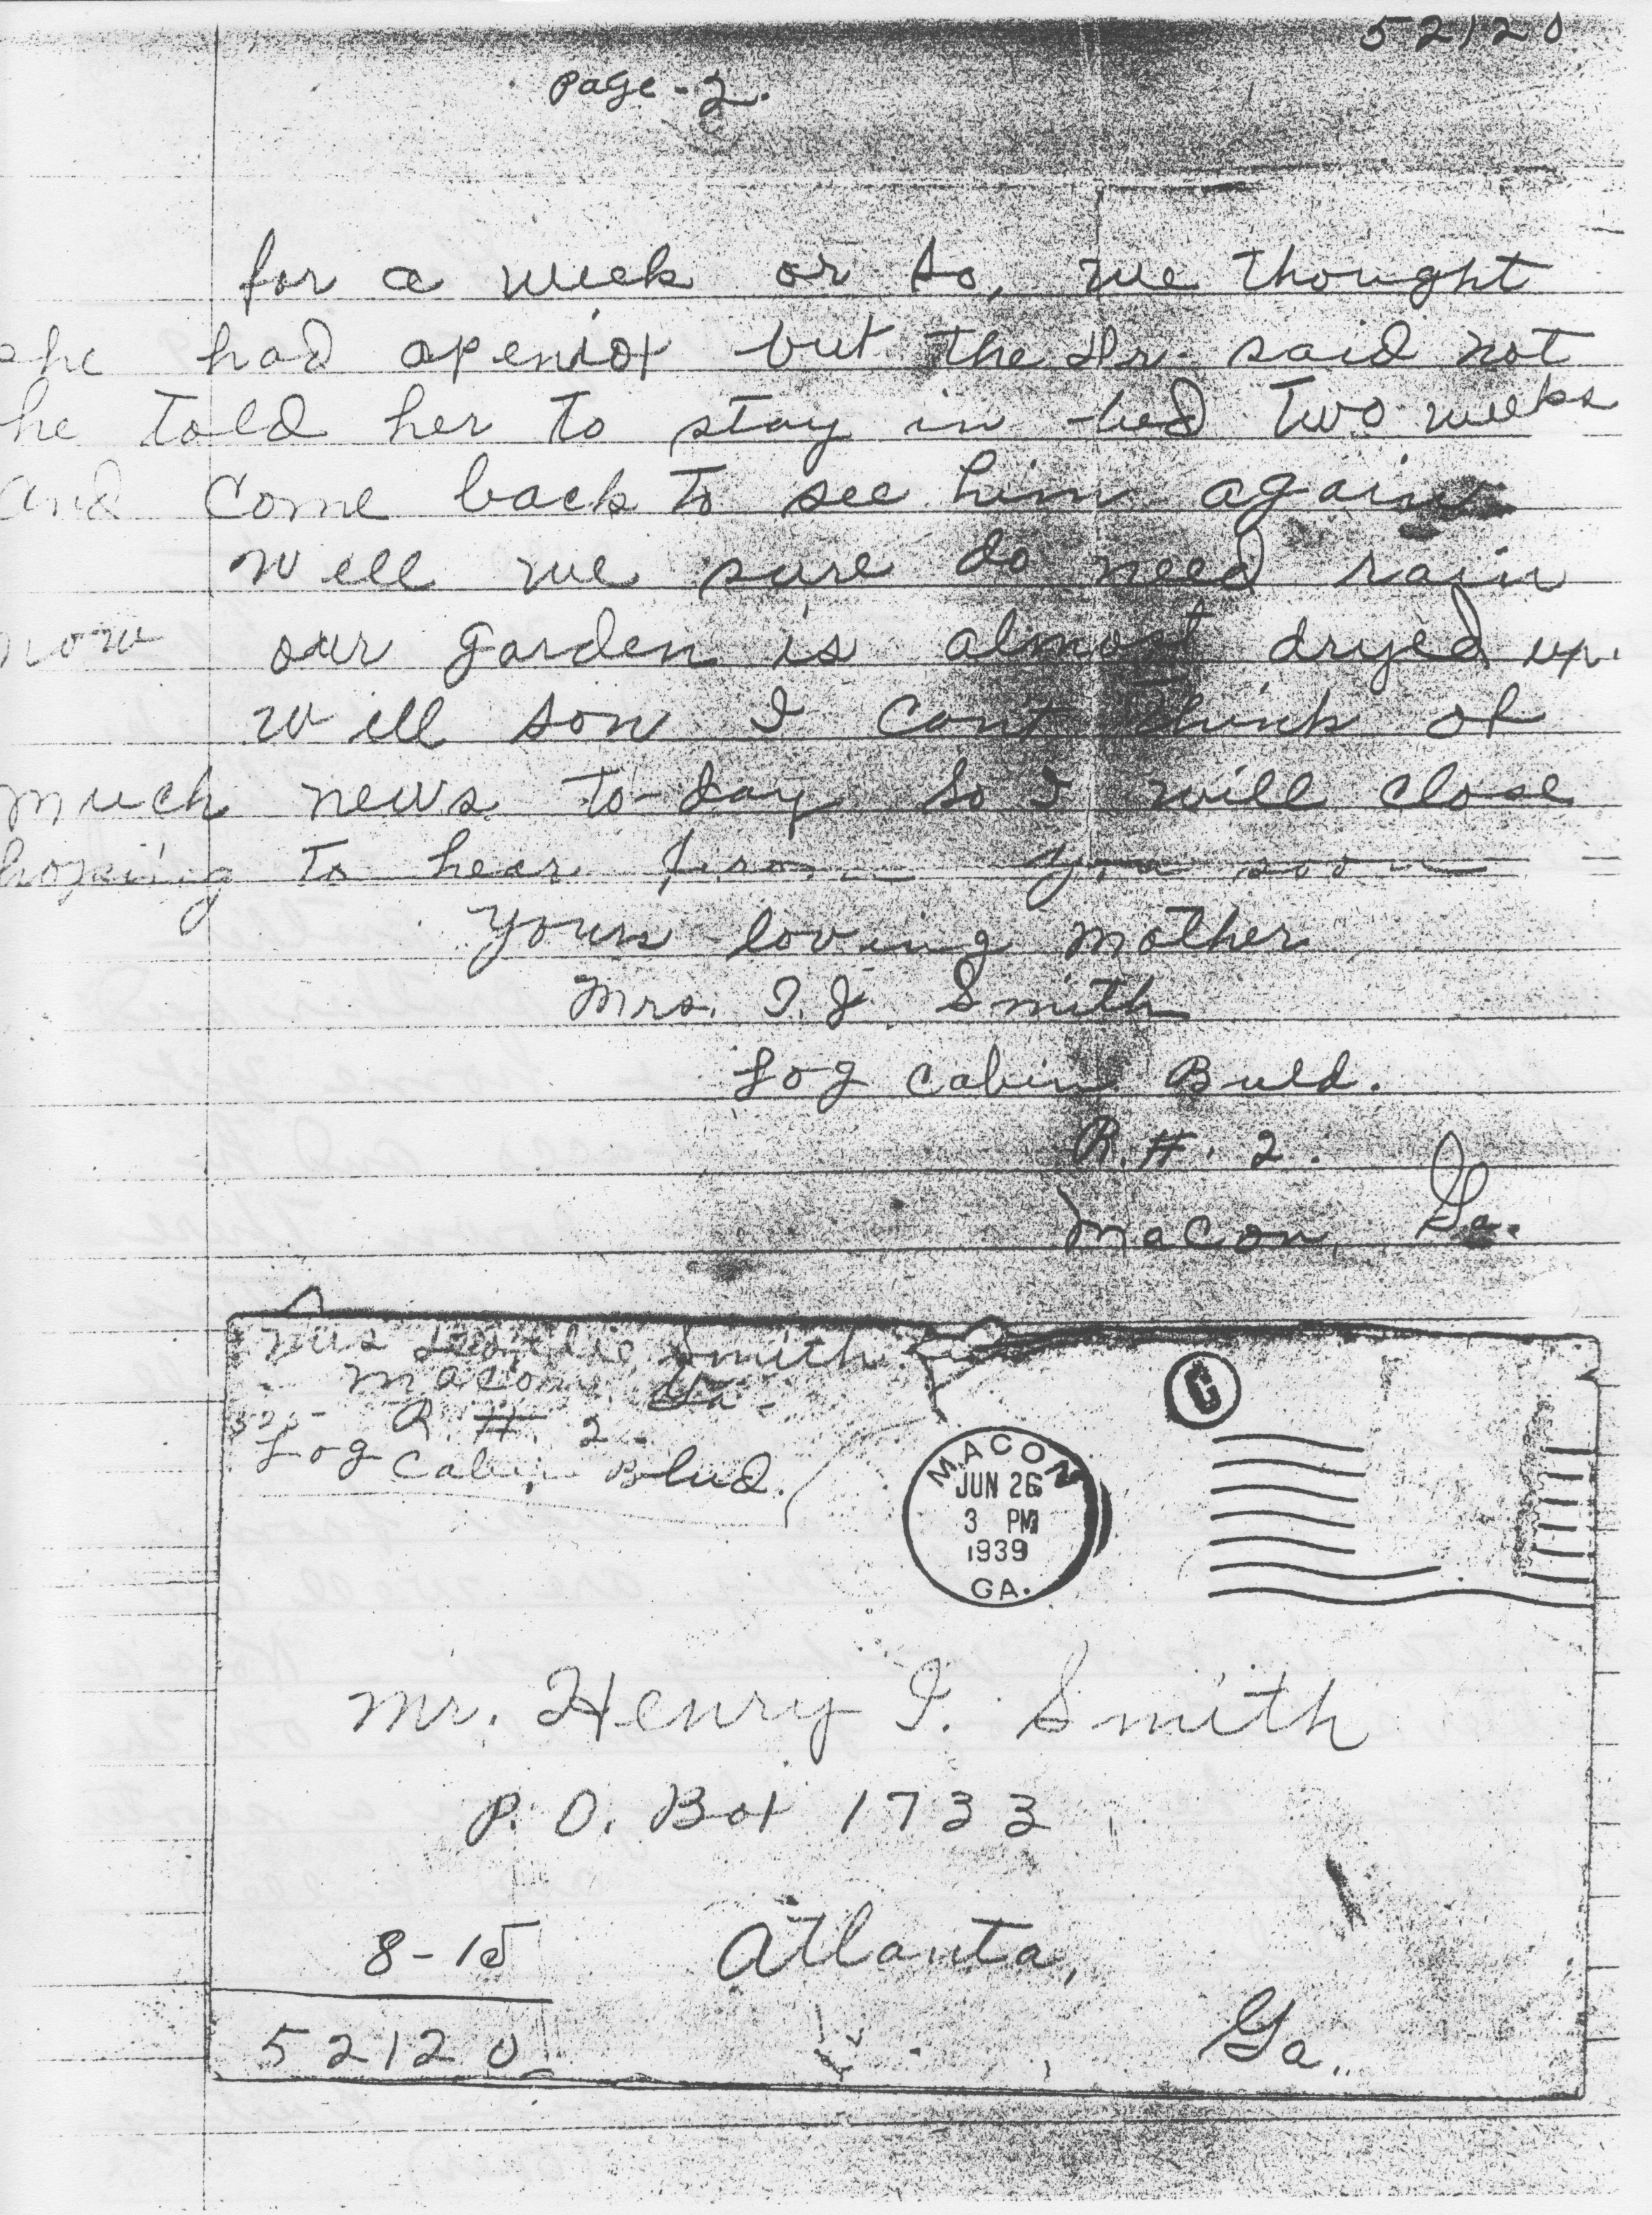 52120
page - 2.
for a week or so, we thought
she had apendox but the Dr. said not
he told her to stay in bed two weeks
and come back to see him again
Well we sure do need rain
now our garden is almost dryed up.
Well son I cant think of
much news to-day so I will close
hopeing to hear from you soon
Yours loving Mother
Mrs. I. J. Smith
Log Cabin Buld.
R. #. 2.
Macon, Ga.
Mrs Smith
Macon, Ga.
325- R. #. 2.
Log Cabin Blud.
C
MACON
JUN 26
3 PM
1939
GA.
Mr. Henry I. Smith
P. O. Box 1733
8-15 Atlanta,
52120 Ga.